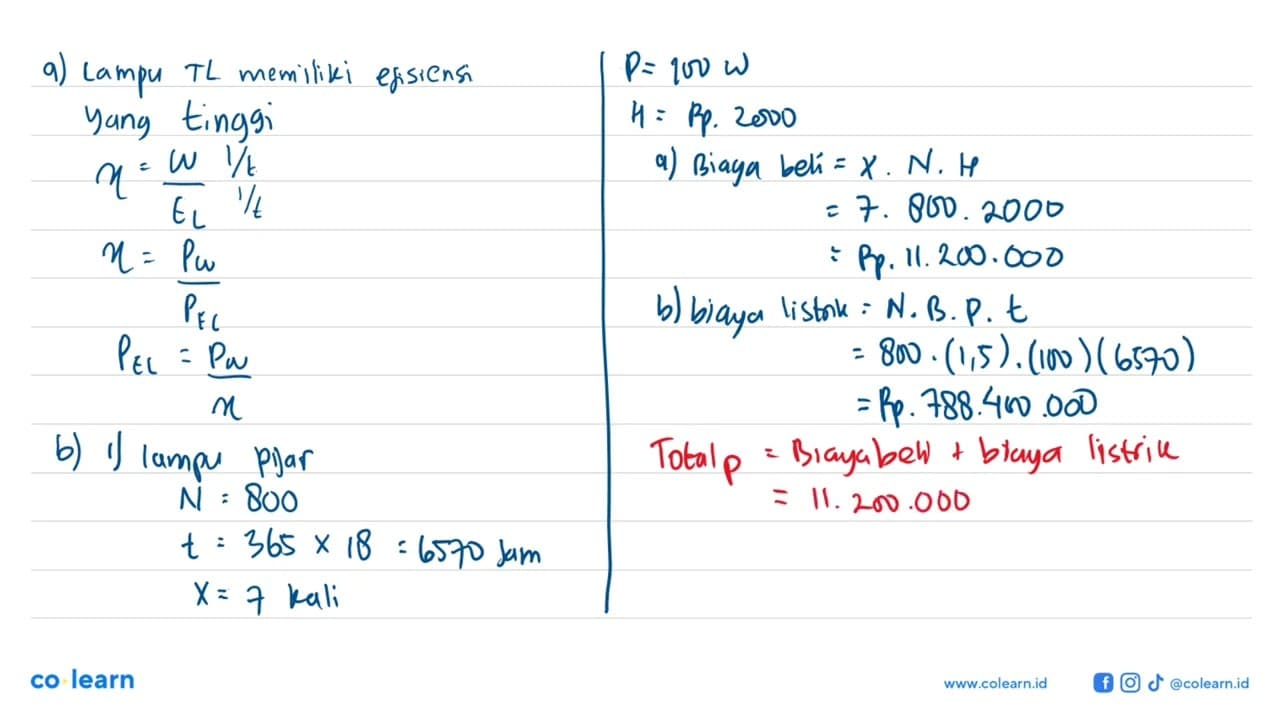 a) Lampu TL memiliki efisiensi
yang tinggi
η = W 1/t
EL 1/t
η = Pw
PEL
PEL = Pw
η
b) 1) lampu pijar
N = 800
t = 365 × 18 = 6570 Jam
X = 7 kali
P = 100 W
H = Rp. 2000
a) Biaya beli = X. N. H
= 7. 800. 2000
= Rp. 11.200.000
b) biaya listrik = N. B. P. t
= 800. (1,5). (100) (6570)
= Rp. 788.400.000
Total p = Biaya beli + biaya listrik
= 11.200.000
co learn
www.colearn.id
@colearn.id